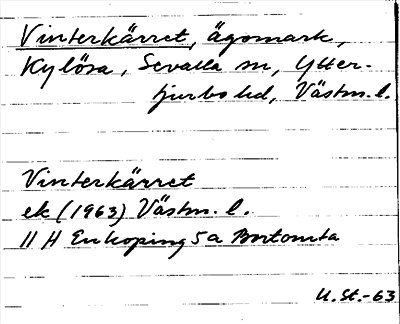 Vinterkärret, ägomark,
Kylösa, Sevalla sn, Ytter-
tjurbo hd, Västm. l.
Vinterkärret
ek (1963) Västm. l.
11 H Enköping 5 a Bortomta
U. St.-63